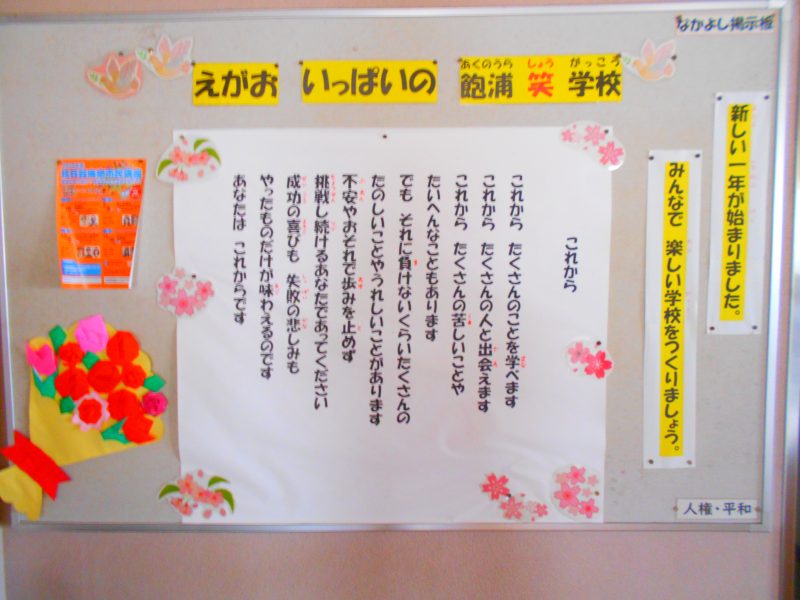 なかよし掲示板
えがお いっぱいの 飽浦 笑 学校
あくのうら しょう がっこう
新しい一年が始まりました。
みんなで 楽しい学校をつくりましょう。
これから
これから たくさんのことを学べます
これから たくさんの人と出会えます
これから たくさんの苦しいことや
たいへんなこともあります
でも それに負けないくらいたくさんの
たのしいことやうれしいことがあります
不安やおそれで歩みを止めず
挑戦し続けるあなたであってください
成功の喜びも 失敗の悲しみも
やったものだけが味わえるのです
あなたは これからです
人権・平和